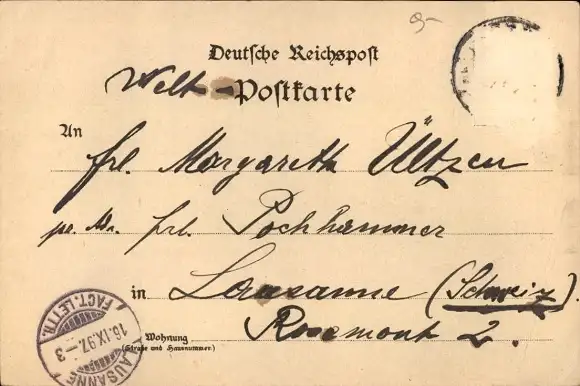 9-
Deutsche Reichspost
Welt-Postkarte
An
frl. Margareth Ültzen
pr. Adr. frl. Pochhammer
in Lausanne (Schweiz)
Rosemont 2.
Wohnung
(Straße und Hausnummer.)
LAUSANNE
16.IX.97.-3
FACT. LETTR.